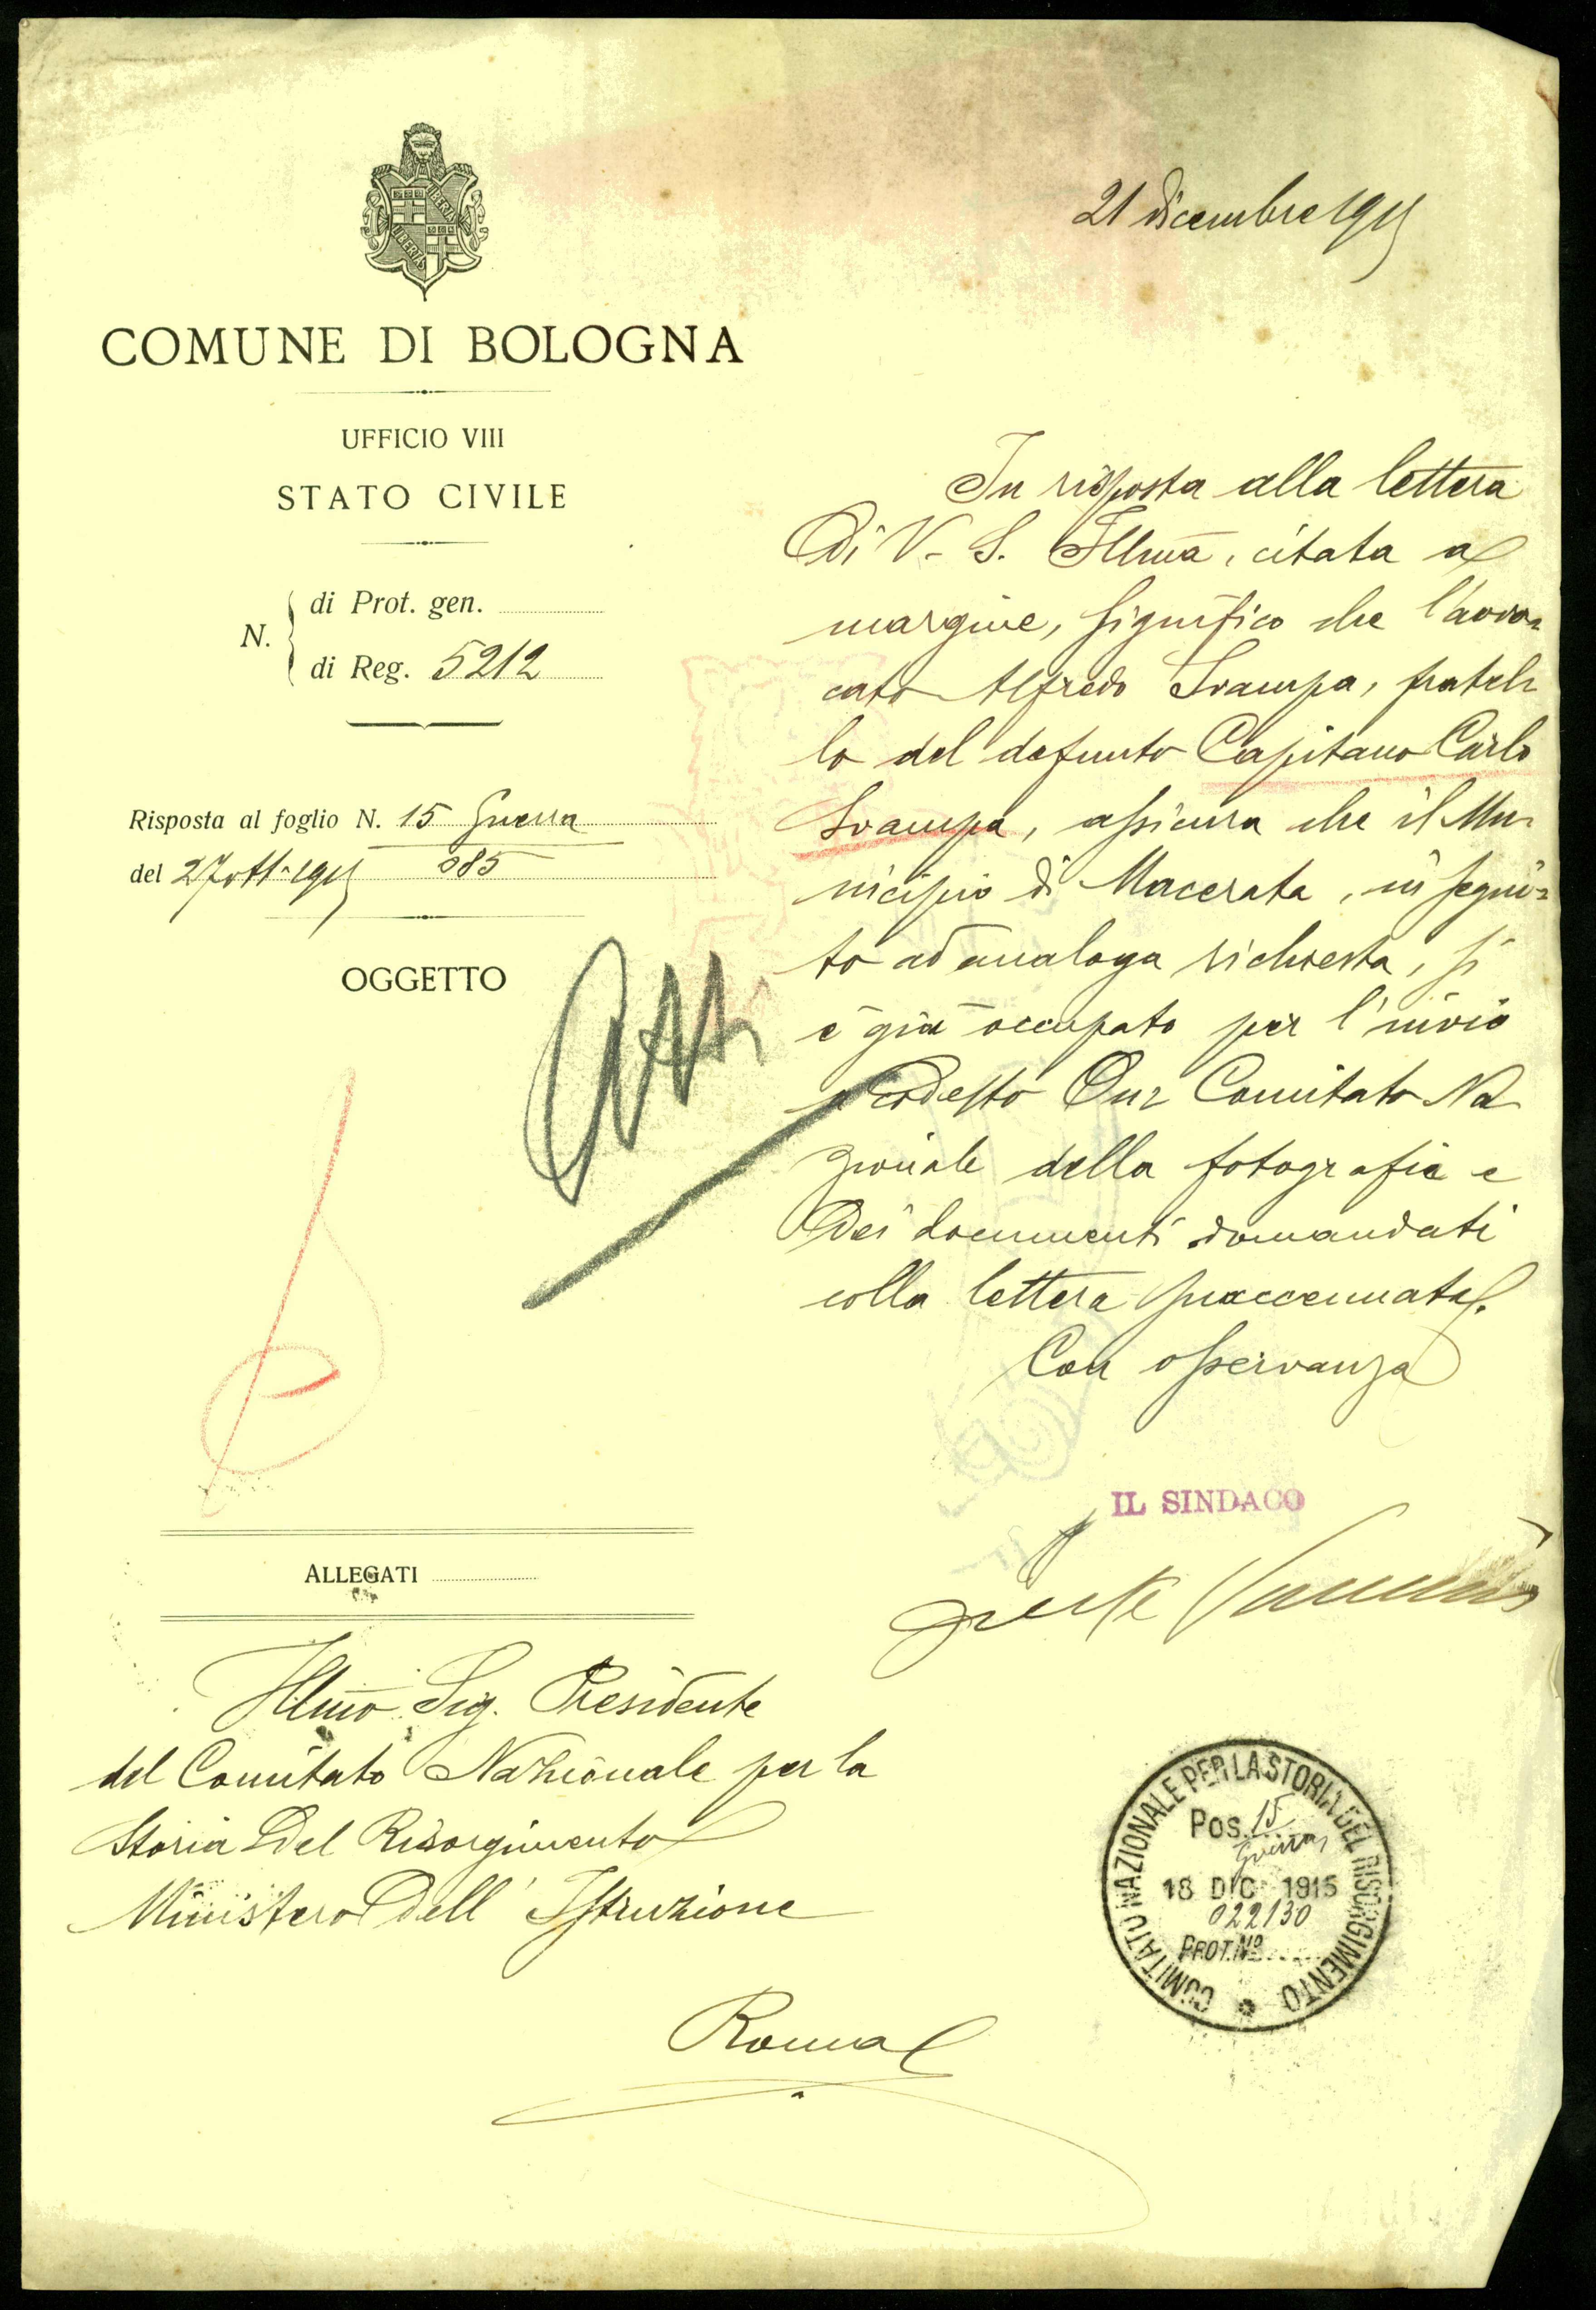 LIBERTAS
COMUNE DI BOLOGNA
UFFICIO VIII
STATO CIVILE
N.
di Prot. gen.
di Reg. 5212
Risposta al foglio N. 15 Guerra
085
del 27 ott. 1915
OGGETTO
Atti
21 dicembre 1915
In risposta alla lettera
di V. S. Illma, citata a
margine, significo che l'avvo=
cato Alfredo Svampa, fratel=
lo del defunto Capitano Carlo
Svampa, assicura che il Mu=
nicipio di Macerata, in segui=
to ad analoga richiesta, si
è già occupato per l'invio
a codesto On. Comitato Na
zionale della fotografia e
dei documenti domandati
colla lettera suaccennata.
Con osservanza
IL SINDACO
ALLEGATI
Illmo Sig. Presidente
del Comitato Nazionale per la
Storia del Risorgimento
Ministero dell'Istruzione
Roma
COMITATO NAZIONALE PER LA STORIA DEL RISORGIMENTO
Pos. 15
Guerra
18 DIC 1915
022130
PROT. No